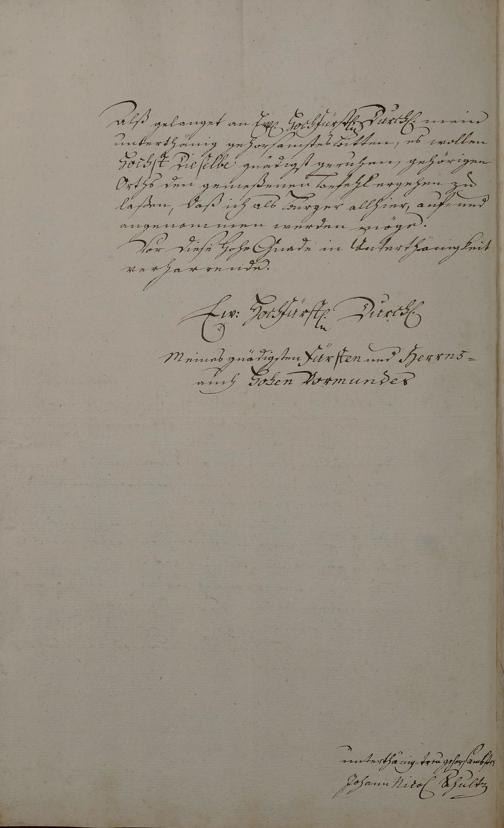 Alß gelanget an Ew: Hochfürstl: Durchl: mein
unterthänig gehorsamstes Bitten, es wollen
Höchst Dieselbe gnädigst geruhen, gehörigen
Orths den gemeßenen Befehl ergehen zu
laßen, daß ich als Burger allhier, auf- und
angenommen werden möge.
Vor diese hohe Gnade in Unterthänigkeit
verharrende.
Ew: Hochfürstl: Durchl:
Meines gnädigsten Fürsten und Herrns=
auch Hohen Vormundes
unterthänig treu gehorsambster
Johann Nicol Schultz